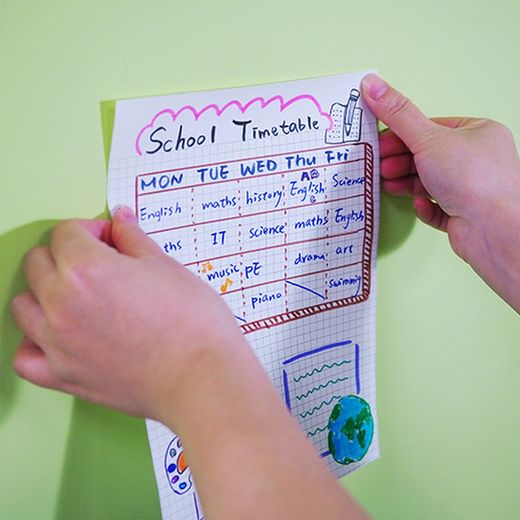 School Timetable
MON TUE WED Thu Fri
English maths history English Science
ths IT Science maths English
music PE drama art
piano swimming